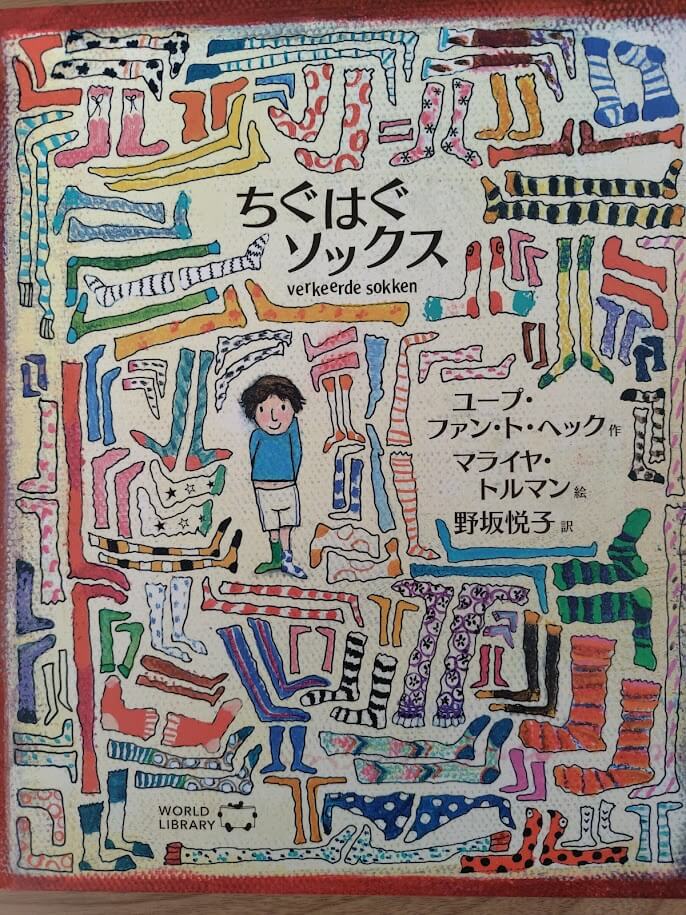 ちぐはぐ
ソックス
verkeerde sokken
ユープ・
ファン・ト・ヘック 作
マライヤ・
トルマン 絵
野坂悦子 訳
WORLD
LIBRARY